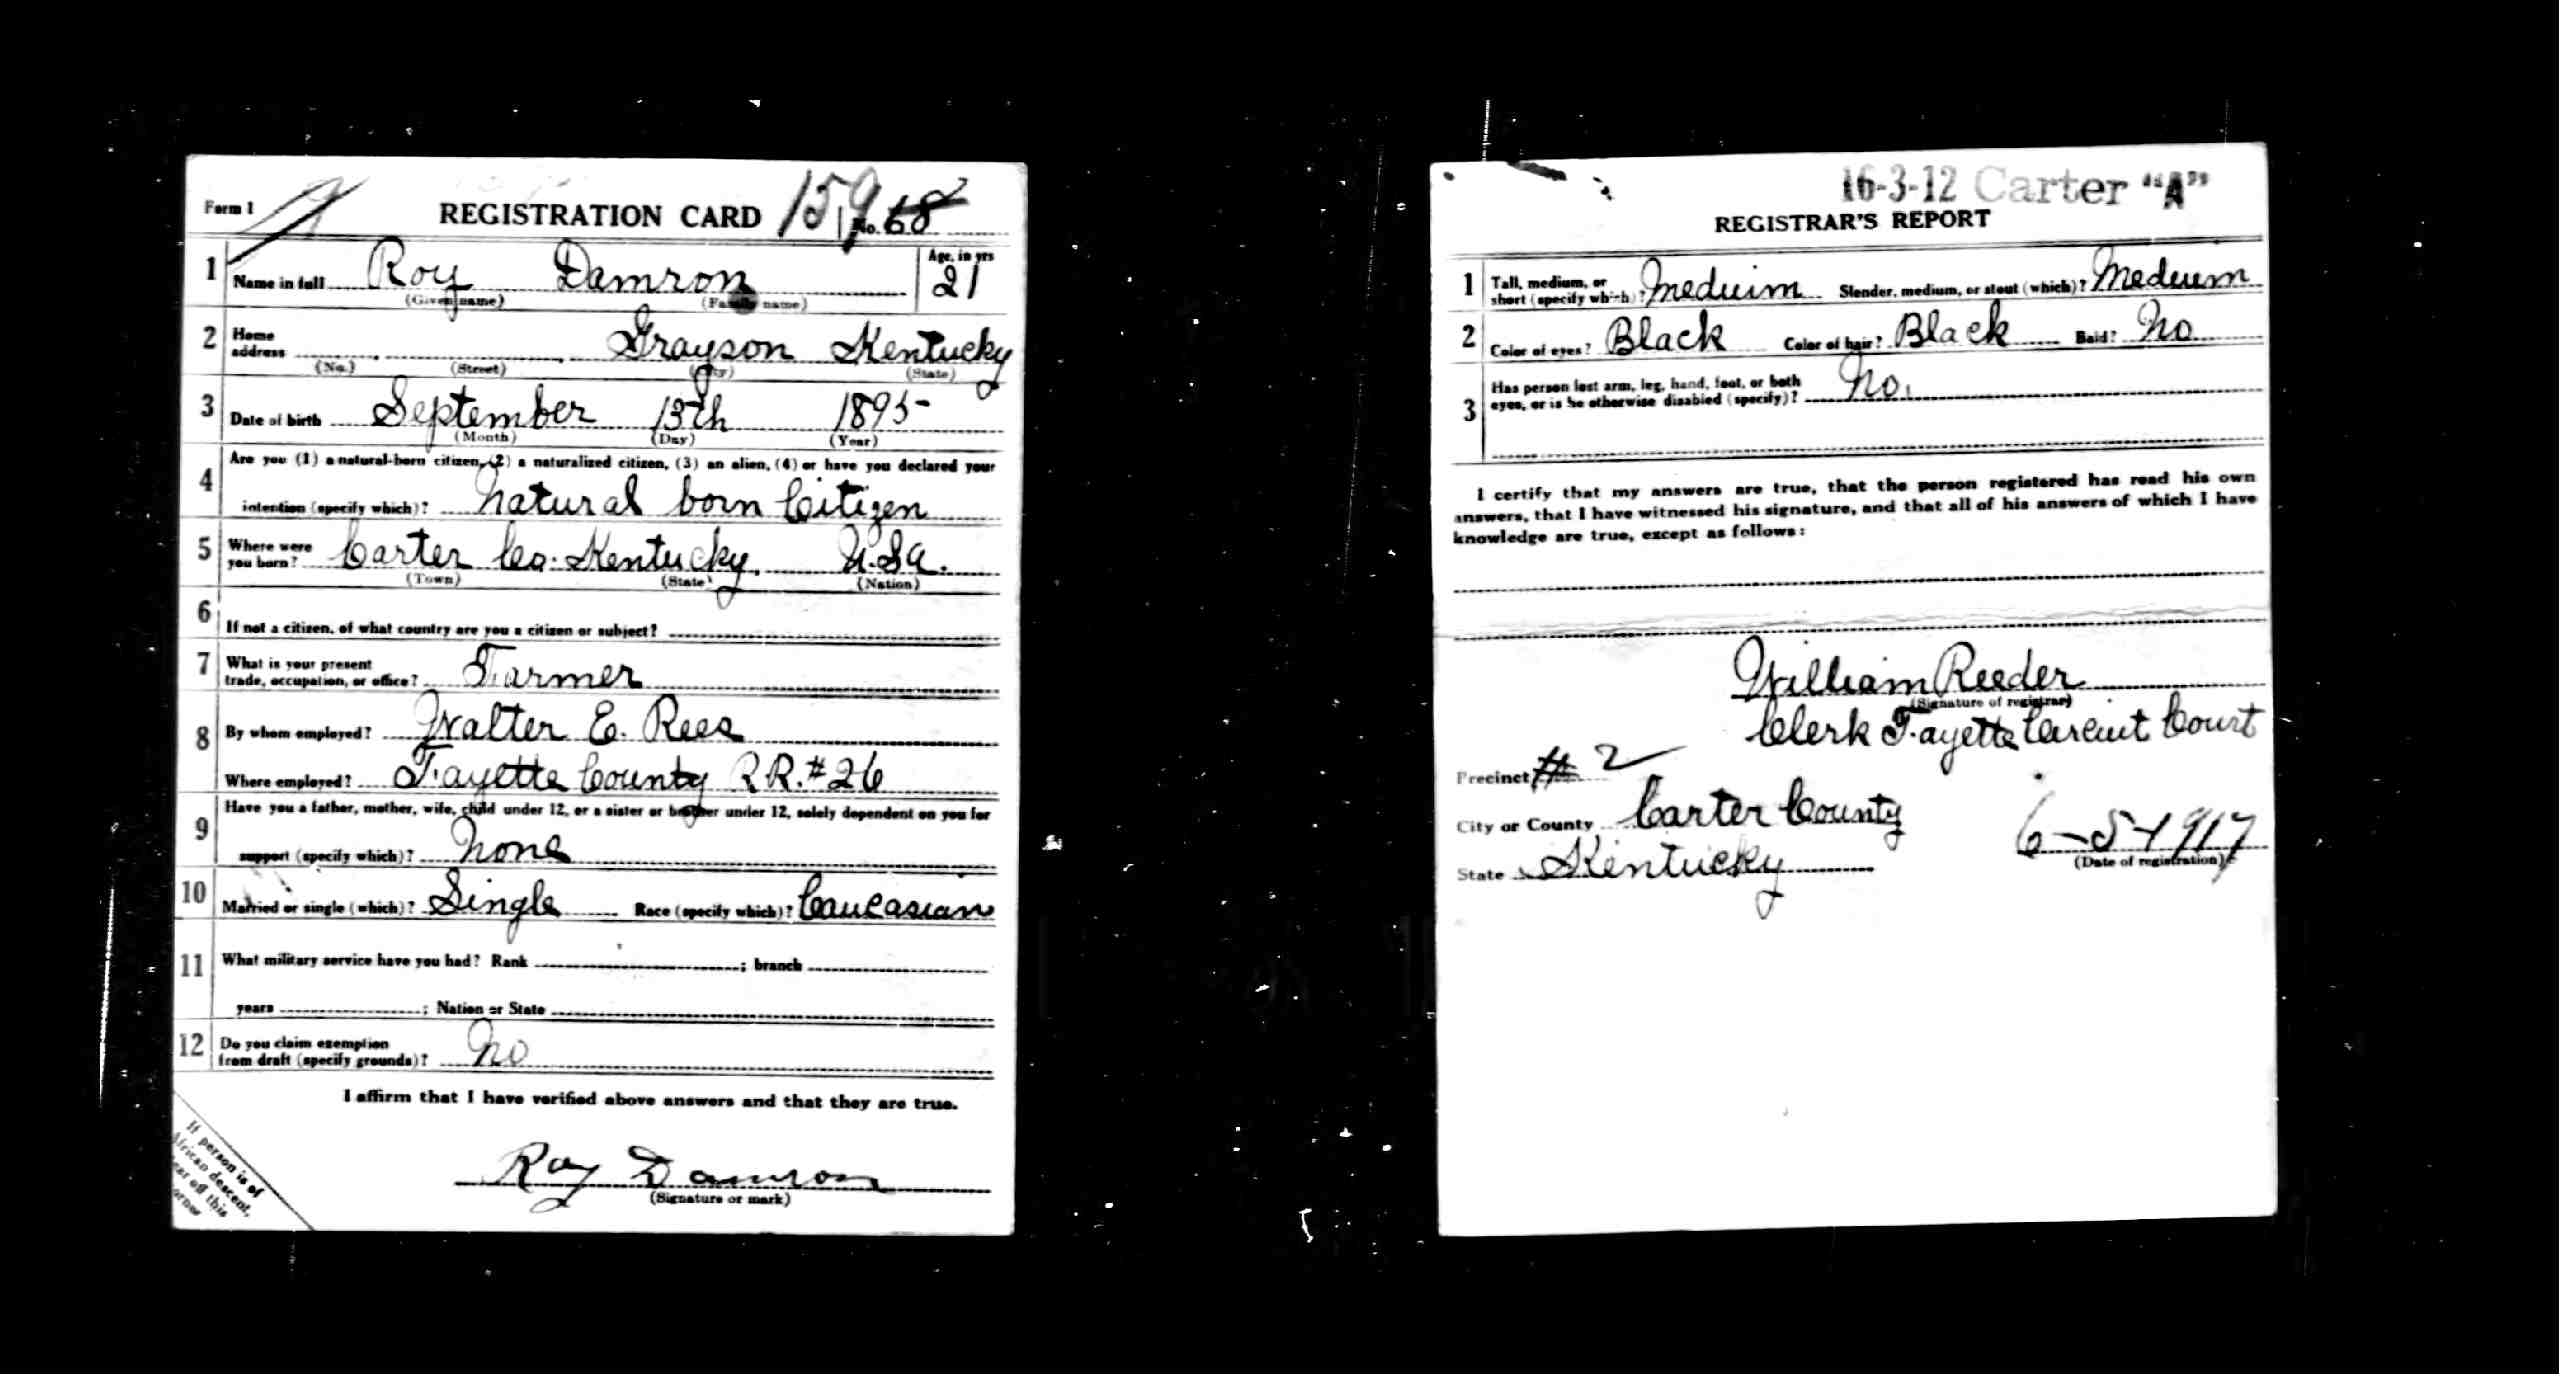 Form 1
REGISTRATION CARD 159 No. 68
1 Name in full Roy Damron Age, in yrs 21
(Given name) (Family name)
2 Home address Grayson Kentucky
(No.) (Street) (City) (State)
3 Date of birth September 13th 1895
(Month) (Day) (Year)
4 Are you (1) a natural-born citizen, (2) a naturalized citizen, (3) an alien, (4) or have you declared your
intention (specify which)? Natural born Citizen
5 Where were you born? Carter Co. Kentucky. U.S.A.
(Town) (State) (Nation)
6 If not a citizen, of what country are you a citizen or subject?
7 What is your present trade, occupation, or office? Farmer
8 By whom employed? Walter E. Rees
Where employed? Fayette County R.R. #26
9 Have you a father, mother, wife, child under 12, or a sister or brother under 12, solely dependent on you for
support (specify which)? None
10 Married or single (which)? Single Race (specify which)? Caucasian
11 What military service have you had? Rank ; branch
years ; Nation or State
12 Do you claim exemption from draft (specify grounds)? No
I affirm that I have verified above answers and that they are true.
Roy Damron
(Signature or mark)
If person is of
African descent,
tear off this
corner
16-3-12 Carter "A"
REGISTRAR'S REPORT
1 Tall, medium, or short (specify which)? Meduim Slender, medium, or stout (which)? Medium
2 Color of eyes? Black Color of hair? Black Bald? No
3 Has person lost arm, leg, hand, foot, or both
eyes, or is he otherwise disabled (specify)? No.
I certify that my answers are true, that the person registered has read his own
answers, that I have witnessed his signature, and that all of his answers of which I have
knowledge are true, except as follows:
William Reeder
(Signature of registrar)
Clerk Fayette Circuit Court
Precinct # 2
City or County Carter County
State Kentucky
6-5-1917
(Date of registration)